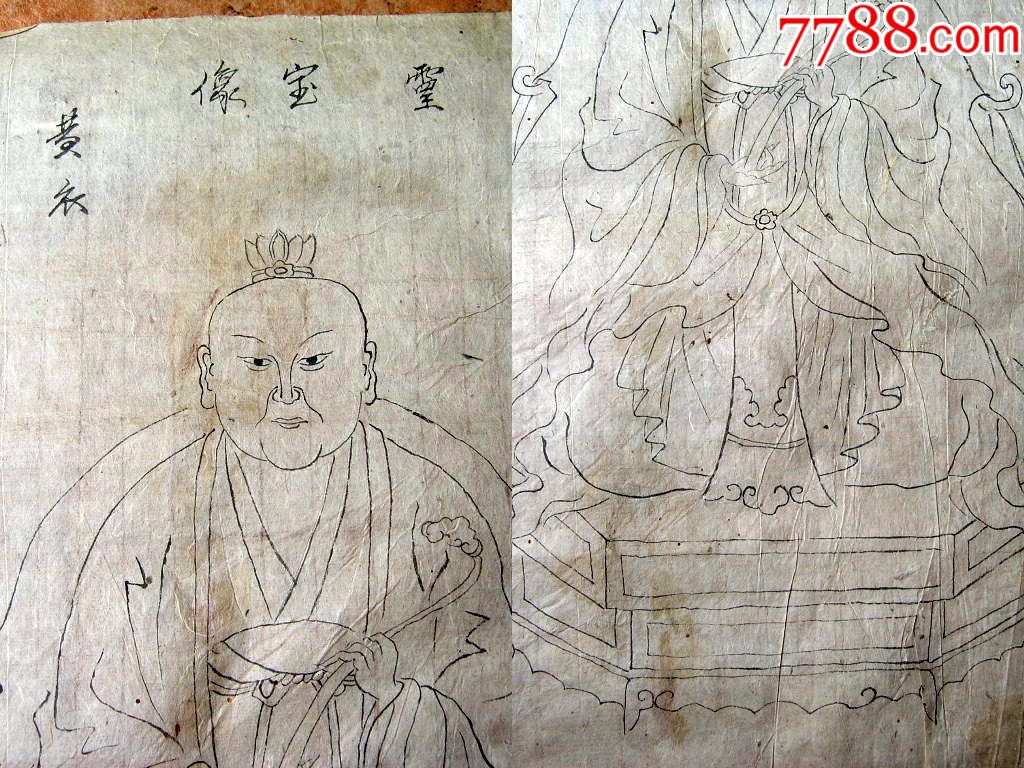 霊宝像
黄衣
7788.com